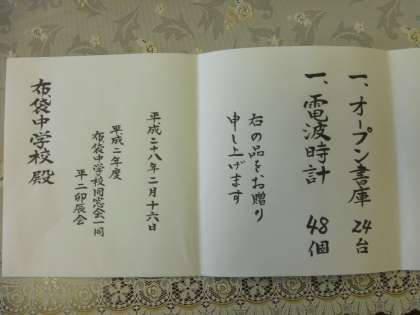 一、オープン書庫 24台
一、電波時計 48個
右の品をお贈り
申し上げます
平成二十八年二月十六日
平成二年度
布袋中学校同窓会一同
平二卯辰会
布袋中学校殿